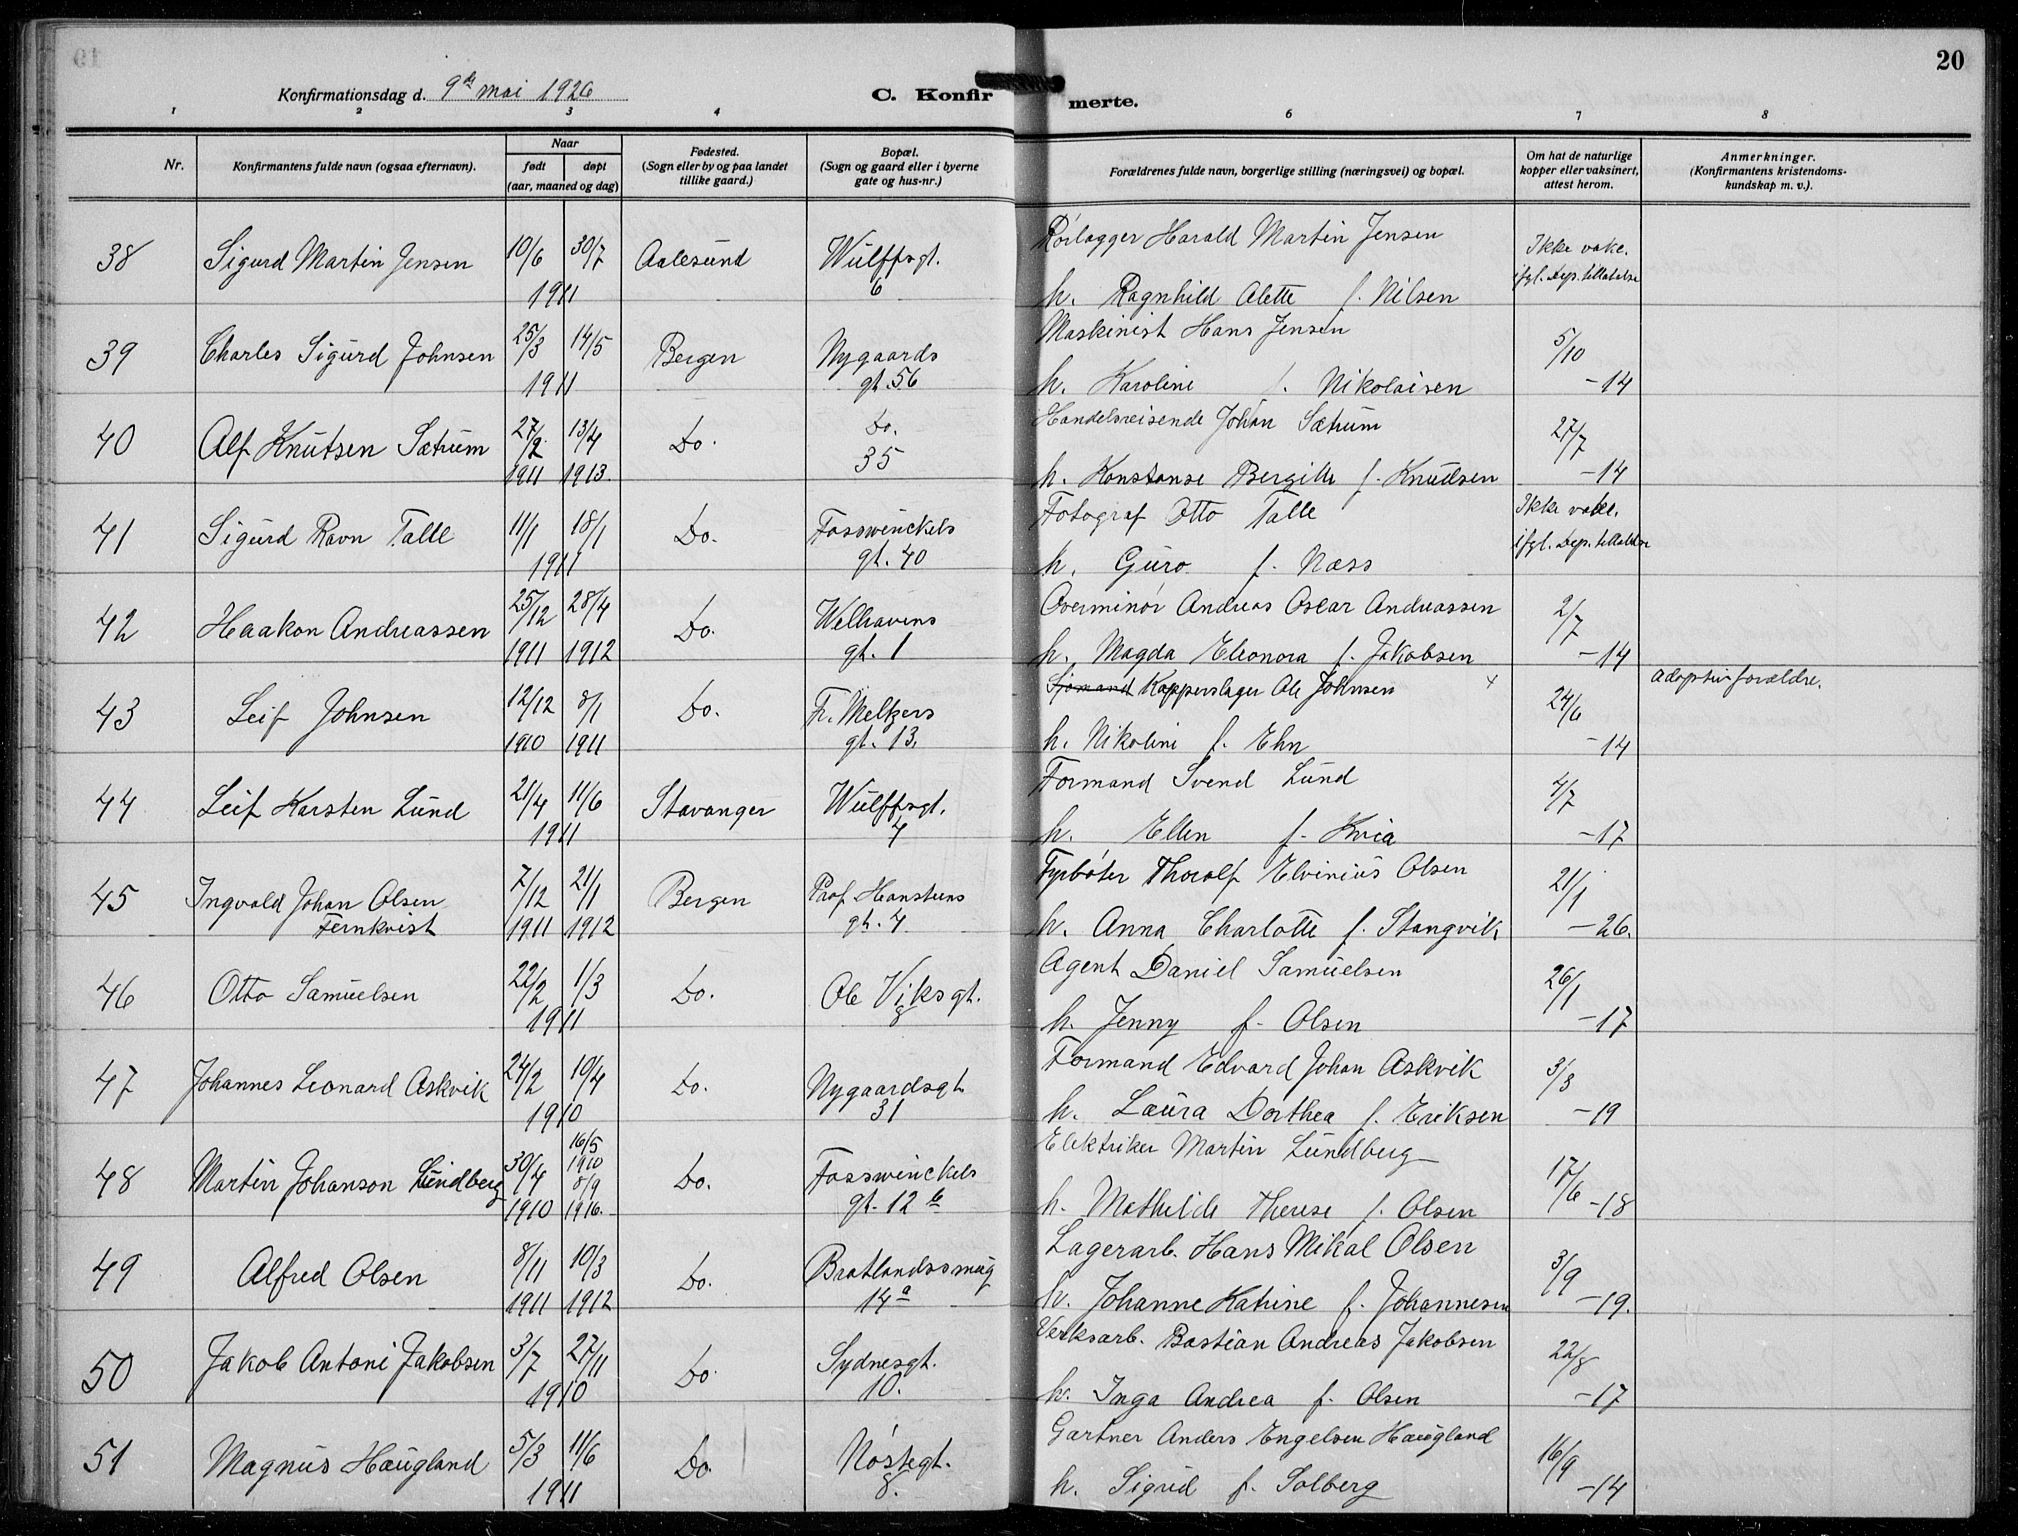 20
Konfirmationsdag d. 9de mai 1926
C. Konfirmerte.
1 2 3 4 5 6 7 8
Nr.
Konfirmantens fulde navn (ogsaa efternavn).
Naar
født døpt
(aar, maaned og dag)
Fødested.
(Sogn eller by og paa landet
tillike gaard.)
Bopæl.
(Sogn og gaard eller i byerne
gate og hus-nr.)
Forældrenes fulde navn, borgerlige stilling (næringsvei) og bopæl.
Om hat de naturlige
kopper eller vaksinert,
attest herom.
Anmerkninger.
(Konfirmantens kristendoms-
kundskap m. v.).
38 Sigurd Martin Jensen 10/6 30/7 Aalesund Wulffsgt. Rørlægger Harald Martin Jensen Ikke vakc.
1911 6 h. Ragnhild Alette f. Nilsen ifgl. Dep. tillatelse
39 Charles Sigurd Johnsen 25/3 14/5 Bergen Nygaards Maskinist Hans Jensen 5/10
1911 gt. 56 h. Karoline f. Nikolaisen -14
40 Alf Knutsen Sætrum 27/2 13/4 Do. Do. Handelsreisende Johan Sætrum 27/7
1911 1913. 35 h. Konstanse Bergitte f. Knudsen -14
41 Sigurd Ravn Talle 11/1 18/1 Do. Fosswinckels Fotograf Otto Talle Ikke vakc.
1911 gt. 40 h. Guro f. Næss ifgl. Dep. tillatelse
42 Haakon Andreassen 25/12 28/4 Do. Welhavens Overminør Andreas Oscar Andreassen 2/7
1911 1912 gt. 1 h. Magda Eleonora f. Jakobsen -14
43 Leif Johnsen 12/12 8/1 Do. Fr. Meltzers Sjømand Kopperslager Ole Johnsen x 24/6 adoptivforældre.
1910 1911 gt. 13. h. Nikoline f. Ehn -14
44 Leif Karsten Lund 21/4 11/6 Stavanger Wulffsgt. Formand Svend Lund 4/7
1911 7 h. Ellen f. Kvia -17
45 Ingvald Johan Olsen 7/12 21/1 Bergen Prof. Hansteens Fyrbøter Thoralf Elvinius Olsen 21/1
Fernkvist 1911 1912 gt. 7 h. Anna Charlotte f. Stangvik -26.
46 Otto Samuelsen 22/2 1/3 Do. Ole Viksgt. Agent Daniel Samuelsen 26/1
1911 8 h. Jenny f. Olsen -17
47 Johannes Leonard Askvik 24/2 10/4 Do. Nygaardsgt Formand Edvard Johan Askvik 3/3
1910 31 h. Laura Dorthea f. Eriksen -19
48 Martin Johanson Lundberg 30/4 16/5 1910 8/9 Do. Fosswinckels Elektriker Martin Lundberg 17/6
1910 1916. gt. 12 b h. Mathilde Therese f. Olsen -18
49 Alfred Olsen 8/11 10/3 Do. Bratlandssmug Lagerarb. Hans Mikal Olsen 3/9
1911 1912 14 a h. Johanne Katrine f. Johannesen -19.
50 Jakob Antoni Jakobsen 3/7 27/11 Do. Sydnesgt. Verksarb. Bastian Andreas Jakobsen 22/8
1910 10. h. Inga Andrea f. Olsen -17
51 Magnus Haugland 5/3 11/6 Do. Nøstegt. Gartner Anders Engelsen Haugland 16/9
1911 8. h. Sigrid f. Solberg -14